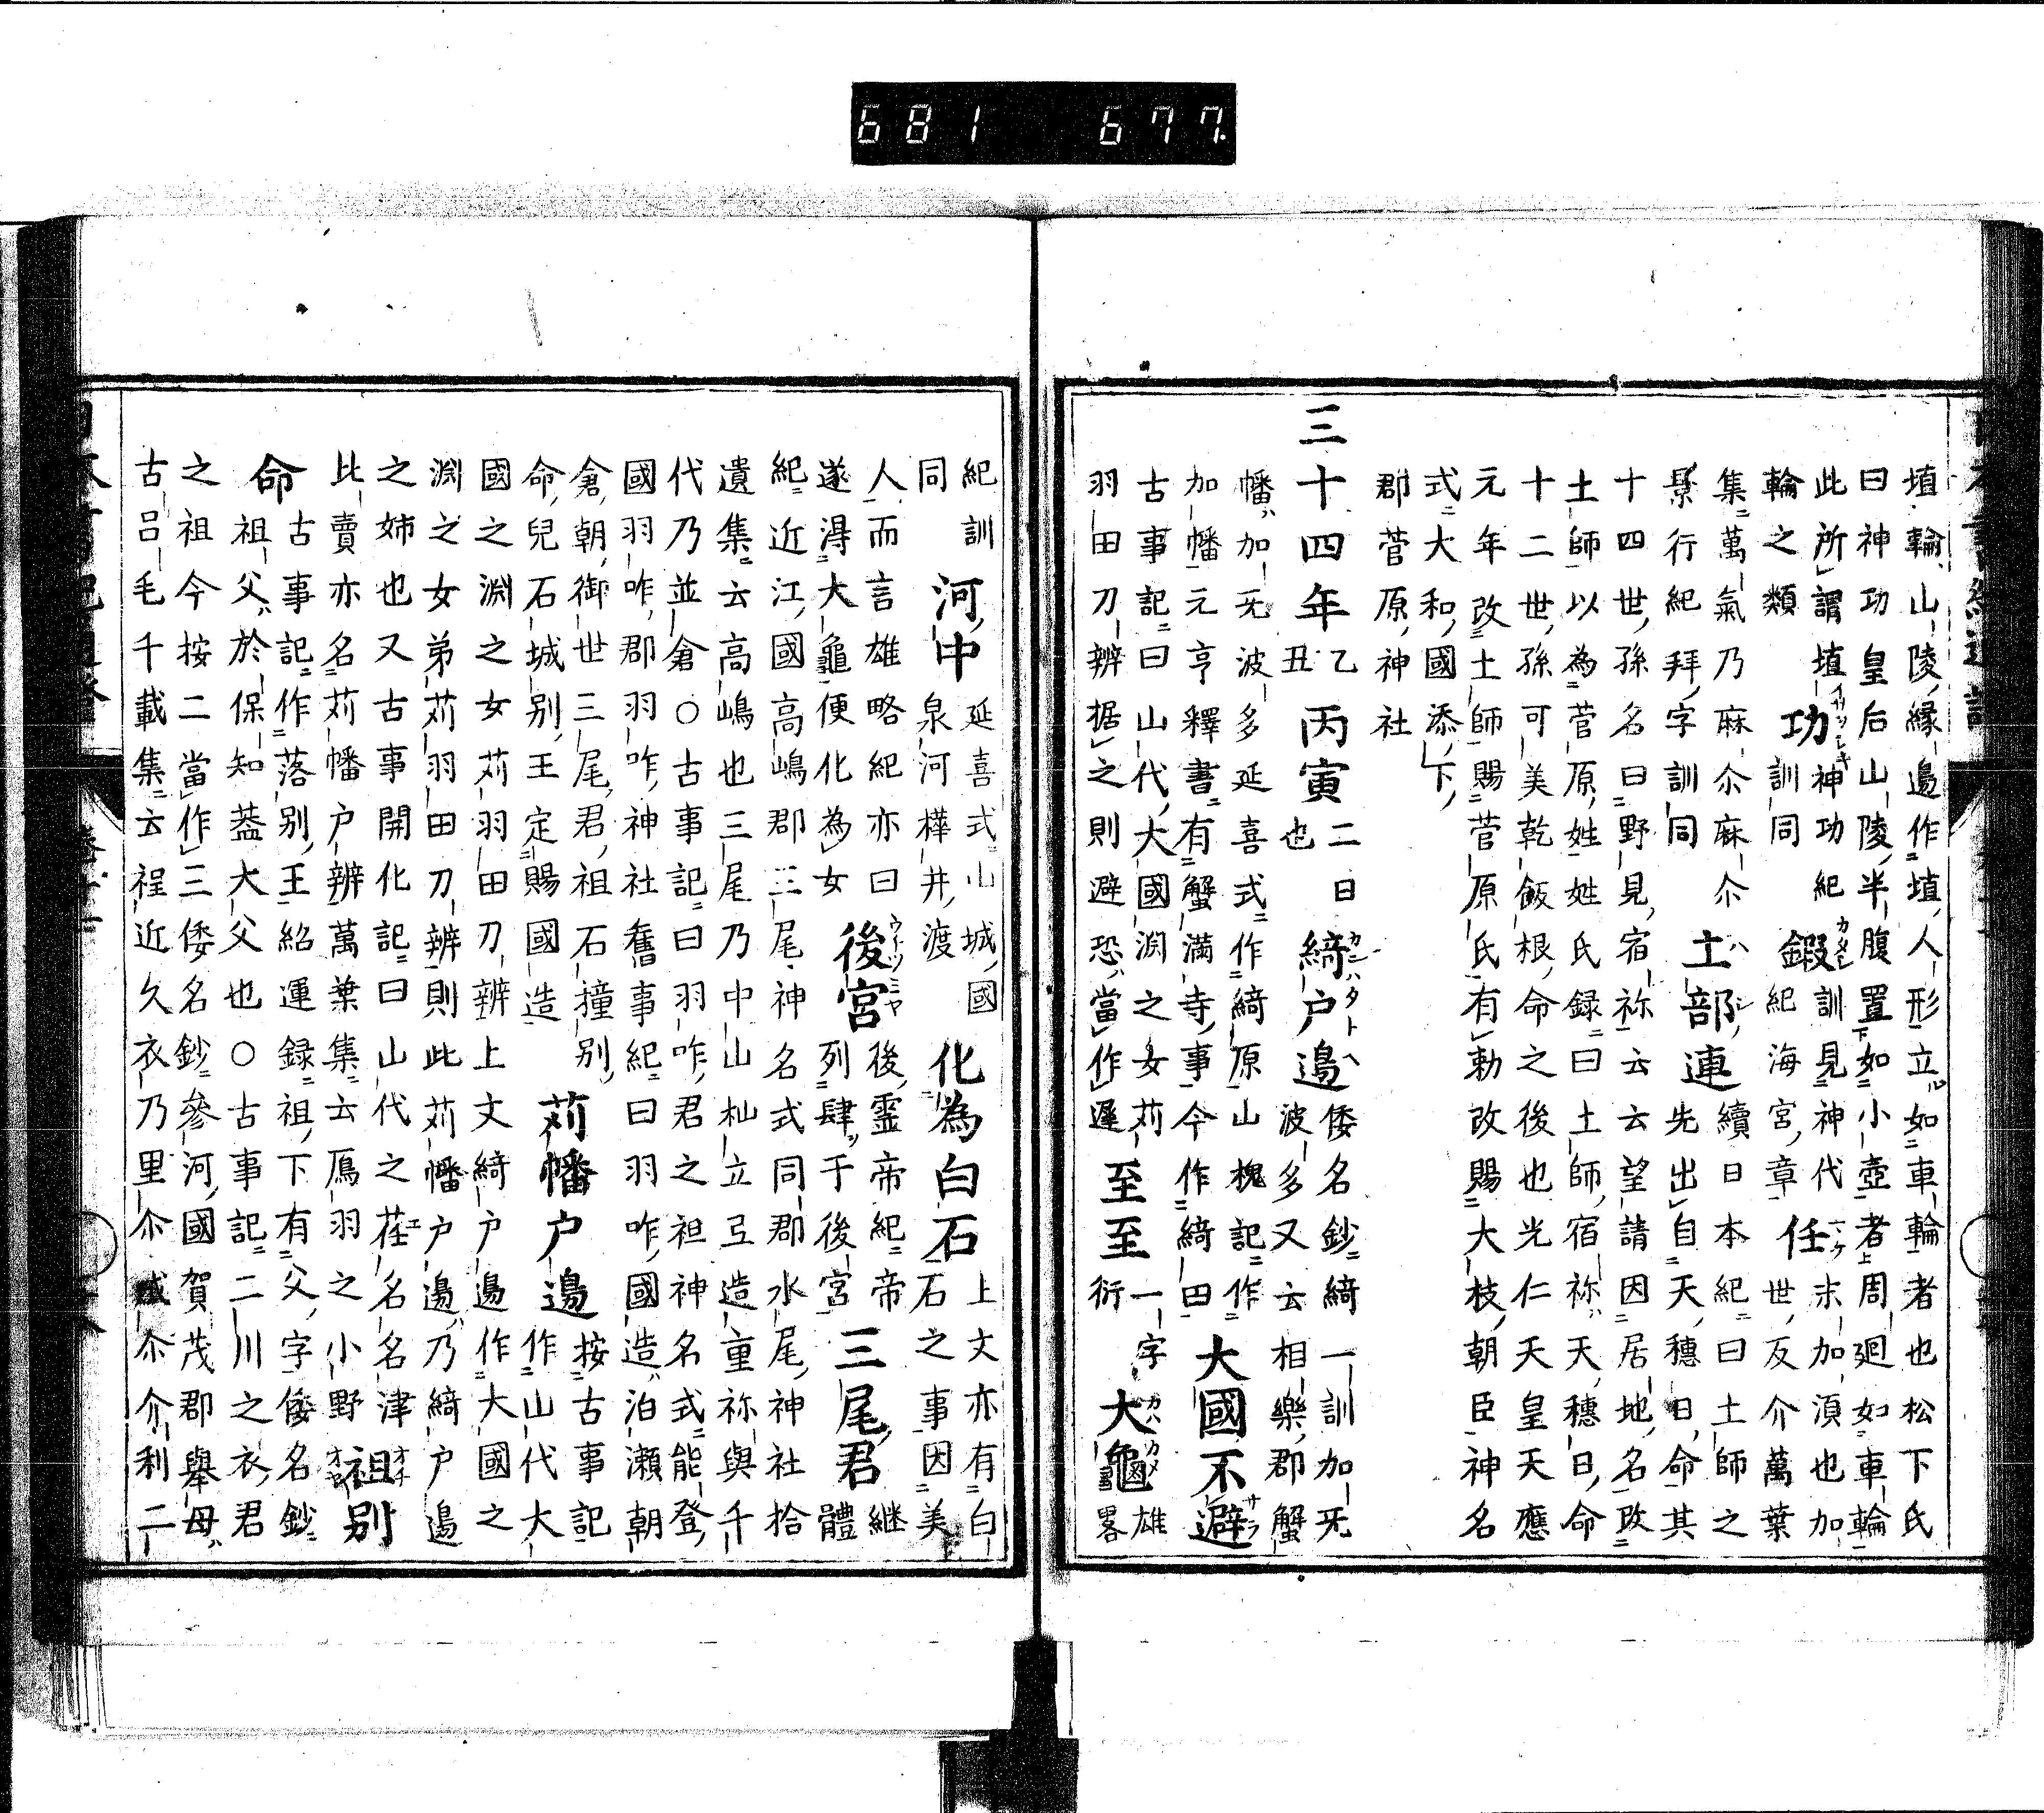 681 677.
埴輪山陵縁邊作埴人形立如車輪者也松下氏
曰神功皇后山陵半腹置如小壺者周廻如車輪
此所謂埴 功神功紀 鍜訓見神代 任末加湏也加
輪之類 訓同 紀海宮章 世反介萬葉
集萬氣乃麻尒麻尒 土部連 續日本紀曰土師之
景行紀拜字訓同 先出自天穗日命其
十四世孫名曰野見宿祢云云望請因居地名改
土師以為菅原姓姓氏録曰土師宿祢天穗日命
十二世孫可美乾飯根命之後也光仁天皇天應
元年改土師賜菅原氏有勅改賜大枝朝臣神名
式大和國添下
郡菅原神社
三十四年乙丑 丙寅二日也 綺戸邊 倭名鈔綺一訓加无
波多又云相樂郡蟹
幡加无波多延喜式作綺原山槐記作
加幡元亨釋書有蟹滿寺事今作綺田 大國不避
古事記曰山代大國淵之女苅
羽田刀辨据之則避恐當作遲 至至 一字衍 大龜 雄畧
紀訓同 河中 延喜式山城國泉河樺井渡 化為白石 上文亦有白石之事因美
人而言雄略紀亦曰
遂得大龜便化為女 後宮 後霊帝紀帝列肆于後宮 三尾君 継體
紀近江國高嶋郡三尾神名式同郡水尾神社拾
遺集云高嶋也三尾乃中山杣立弖造重祢與千
代乃並倉○古事記曰羽咋君之祖神名式能登
國羽咋郡羽咋神社舊事紀曰羽咋國造泊瀬朝
倉朝御世三尾君祖石撞別
命兒石城別王定賜國造 苅幡戸邊 按古事記作山代大
國之淵之女苅羽田刀辨上文綺戸邊作大國之
淵之女弟苅羽田刀辨則此苅幡戸邊乃綺戸邊
之姉也又古事開化記曰山代之荏名名津
比賣亦名苅幡戸辨萬葉集云鳫羽之小野 祖別
命 古事記作落別王紹運録祖下有父字倭名鈔
祖父於保知葢大父也○古事記二川之衣君
之祖今按二當作三倭名鈔參河國賀茂郡舉母
古呂毛千載集云裎近久衣乃里尒成尒介利二